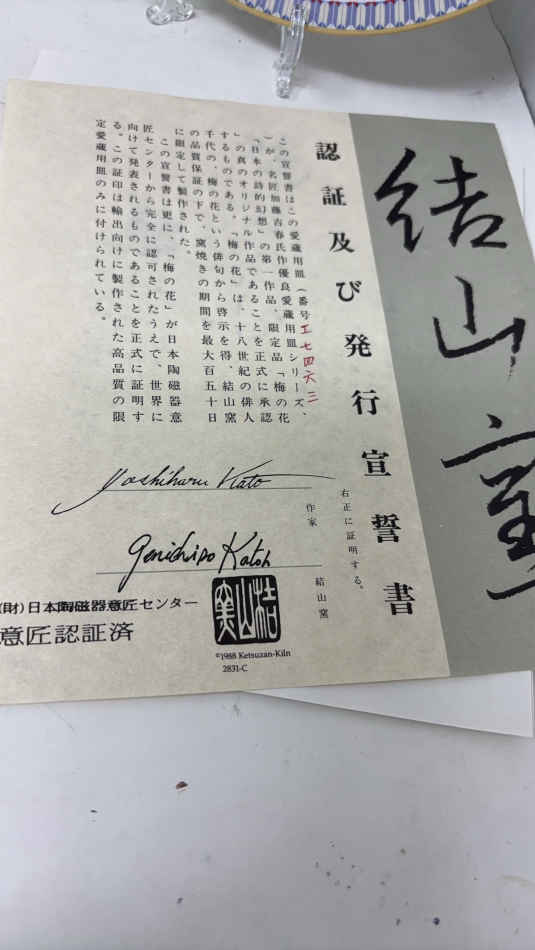 結山窯
認証及び発行宣誓書
この宣誓書はこの愛蔵用皿(番号エ七四六三
)が、名匠加藤吉春氏作優良愛蔵用皿シリーズ、
「日本の詩的幻想」の第一作品、限定品「梅の花
」の真のオリジナル作品であることを正式に承認
するものである。「梅の花」は、十八世紀の俳人
千代の、梅の花という俳句から啓示を得、結山窯
の品質保証の下で、窯焼きの期間を最大百五十日
に限定して製作された。
この宣誓書は更に、「梅の花」が日本陶磁器意
匠センターから完全に認可されたうえで、世界に
向けて発表されるものであることを正式に証明す
る。この証印は輸出向けに製作された高品質の限
定愛蔵用皿のみに付けられている。
右正に証明する。
作家 結山窯
Yoshiharu Kato
Genichiro Katoh
結山窯
(財)日本陶磁器意匠センター
意匠認証済
©1988 Ketsuzan-Kiln
2831-C